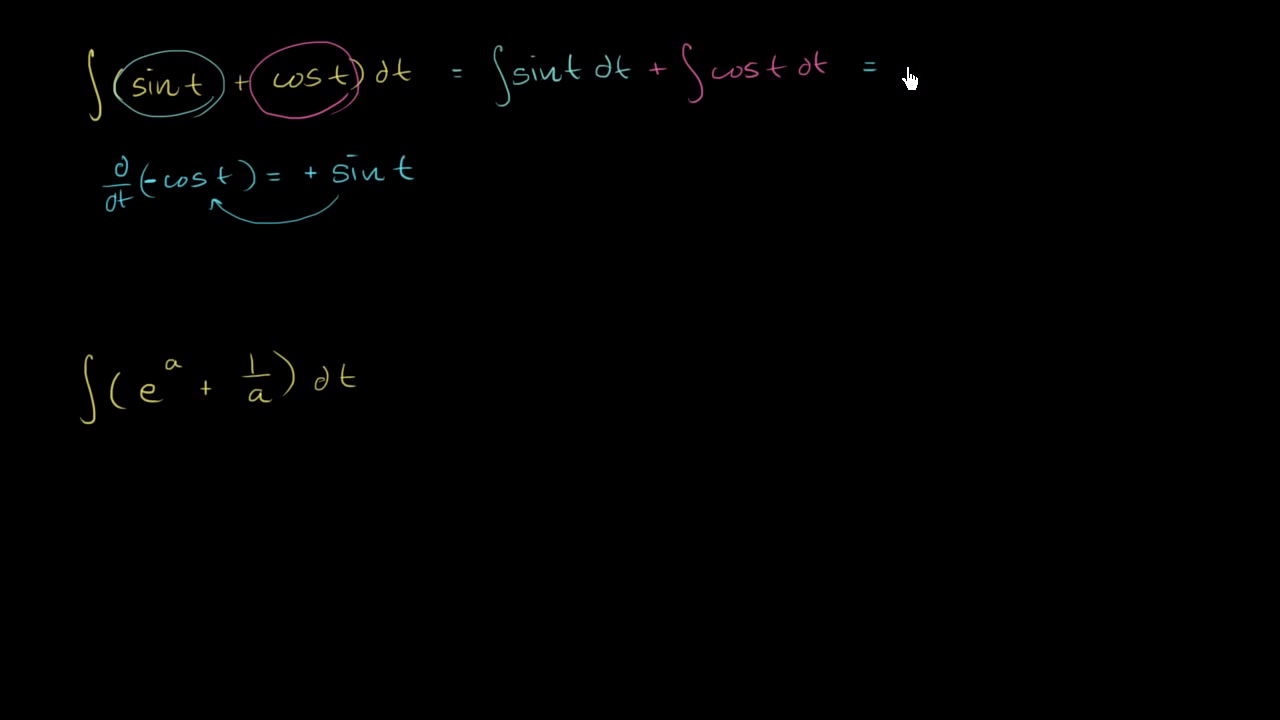 ∫(sin t + cos t) dt = ∫sin t dt + ∫cos t dt =
d/dt (-cos t) = + sin t
∫(e^a + 1/a) dt